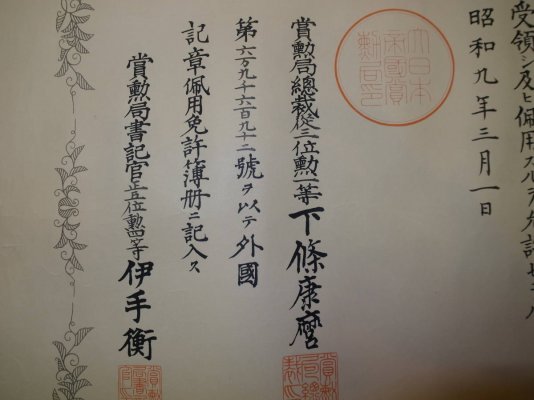 受領シ及ヒ佩用スルヲ允許セラル
昭和九年三月一日
大日本
帝國賞
勲局印
賞勲局總裁從三位勲一等下條康麿
第六万九千六百九十二號ヲ以テ外國
記章佩用免許簿册ニ記入ス
賞勲局書記官正五位勲四等伊手衡
賞勲
局總
裁印